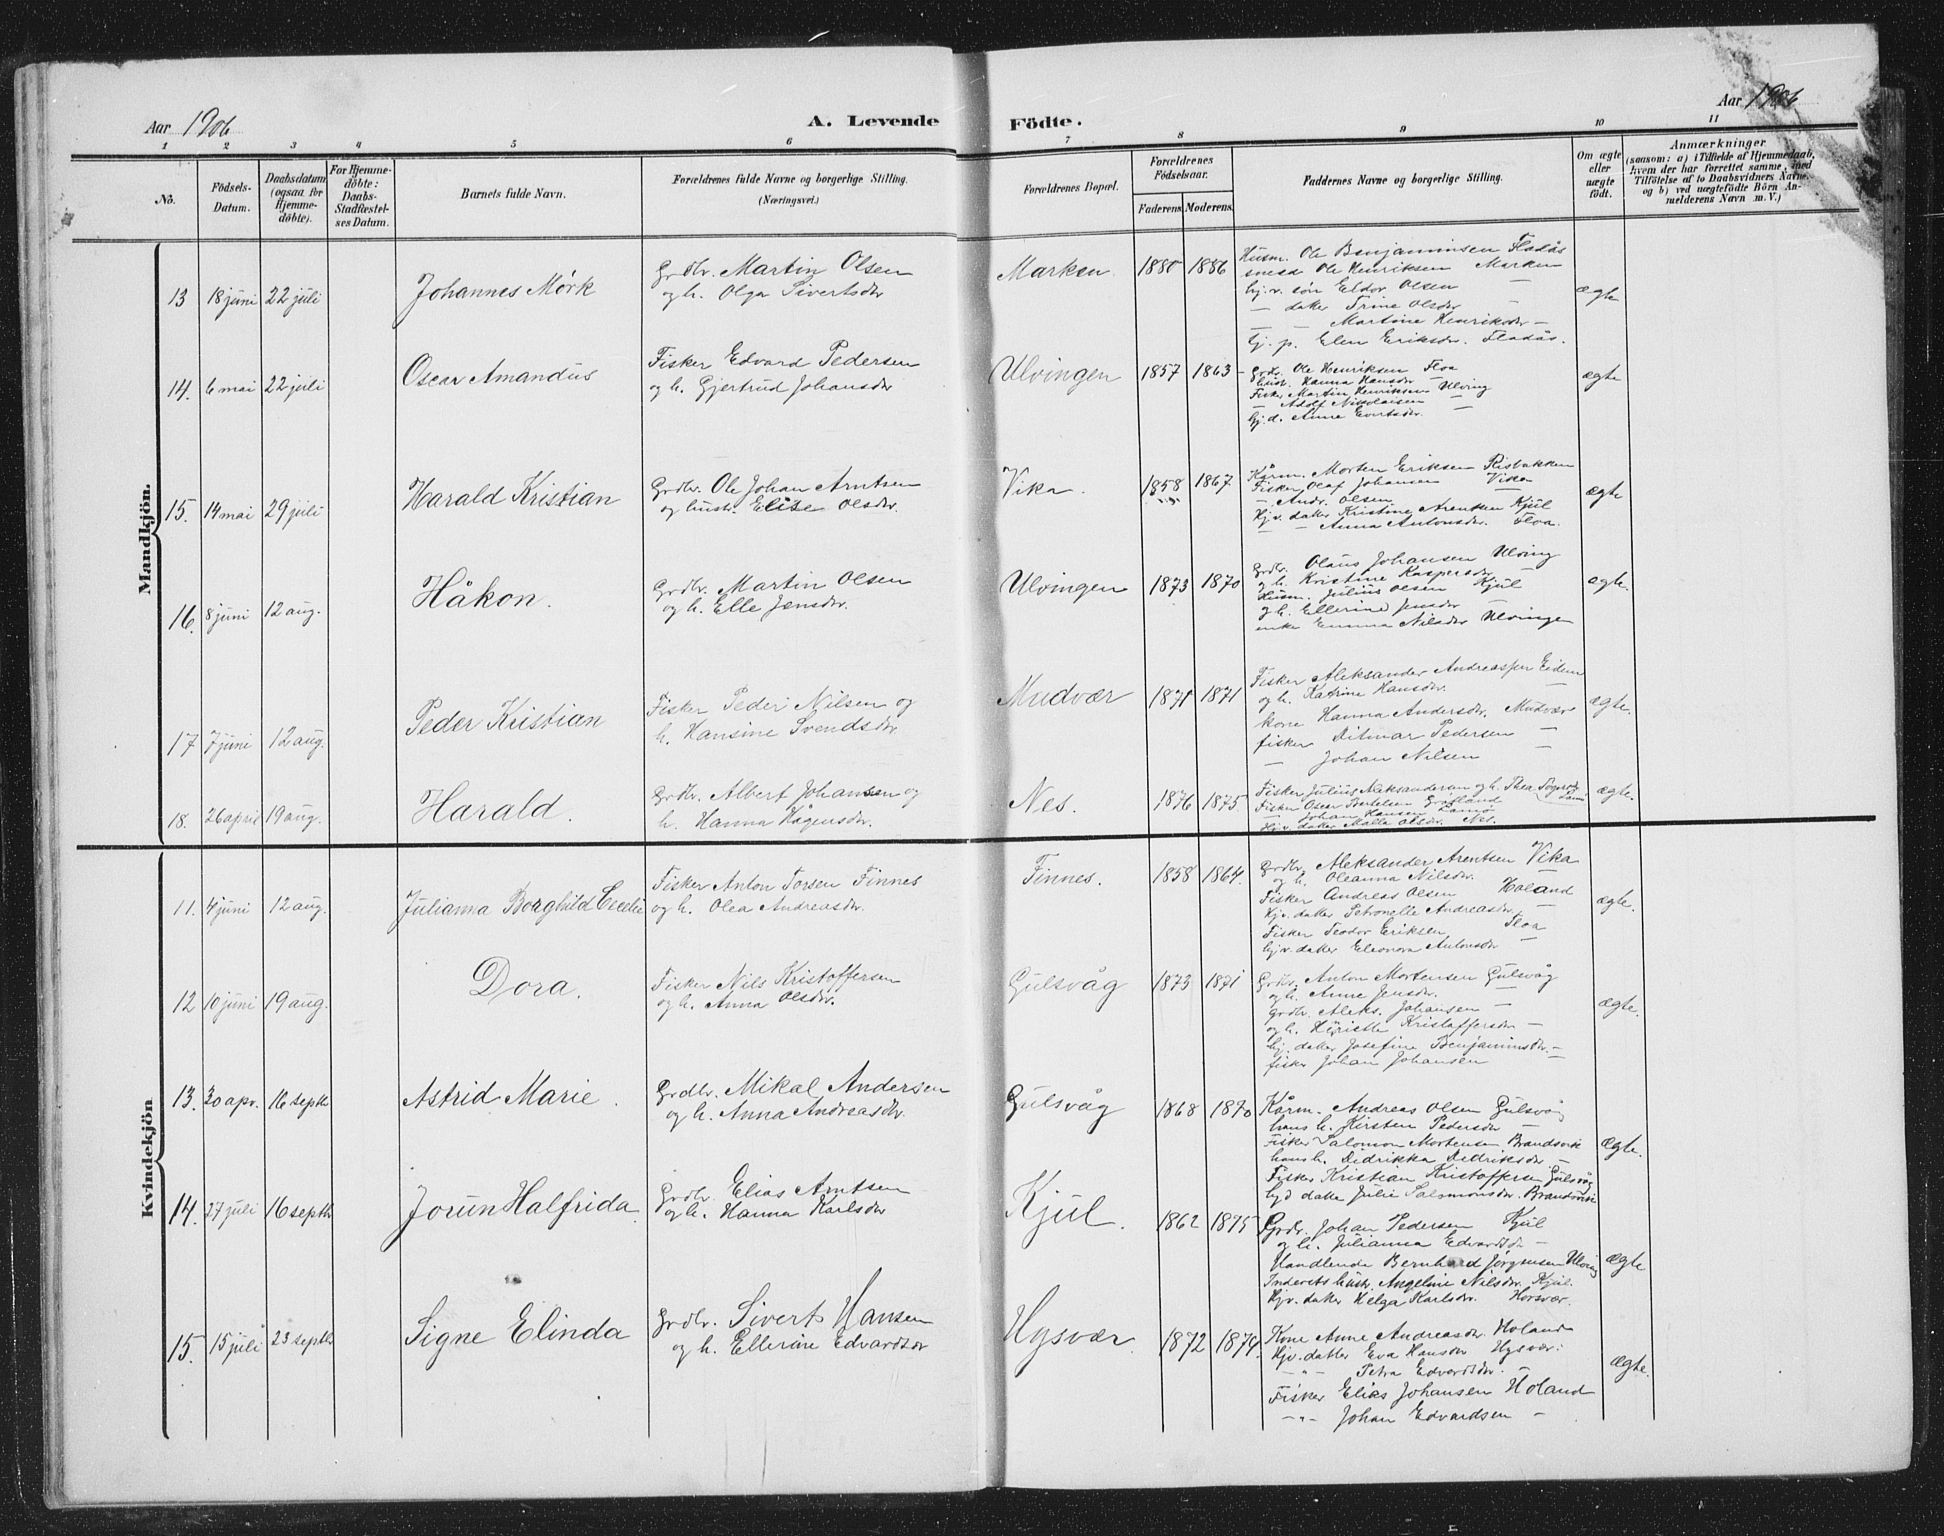 Aar 1906
A. Levende
Födte.
Aar 1906
1 2 3 4 5 6 7 8 9 10 11
No.
Födsels-
Datum.
Daabsdatum
(ogsaa for
Hjemme-
döbte).
For Hjemme-
döbte:
Daabs-
Stadfæstel-
ses Datum.
Barnets fulde Navn.
Forældrenes fulde Navne og borgerlige Stilling.
(Næringsvei.)
Forældrenes Bopæl.
Forældrenes
Födselsaar.
Faderens Moderens.
Faddernes Navne og borgerlige Stilling.
Om ægte
eller
uægte
født.
Anmærkninger
(saasom: a) i Tilfælde af Hjemmedaab,
hvem der har forrettet samme, med
Tilföielse af to Daabsvidners Navne,
og b) ved uægtefödte Börn An-
melderens Navn m. V.)
Mandkjön.
13 18 juni 22 juli Johannes Mørk
Grdbr. Martin Olsen
og h. Olga Sivertsdr
Marken 1880 1886
Husm. Ole Benjaminsen Fladås
smed Ole Henriksen Marken
hj.v. søn Eldor Olsen —
— datter Trine Olsdr —
— Martine Henriksdr —
hj. p. Elen Eriksdr. Fladås.
ægte
14. 6 mai 22 juli Oscar Amandus
Fisker Edvard Pedersen
og h. Gjertrud Johansdr
Ulvingen 1857 1863
Grdbr. Ole Henriksen Floa
Hust. Hanna Hansdr —
Fisker Martin Henriksen Ulving
— Adolf Nikolaisen —
hj. d. Anne Evertsdr. —
ægte
15. 14 mai 29 juli Harald Kristian
Grdbr. Ole Johan Arntsen
og hustr. Elise Olsdr.
Vika. 1858 1867
Kårm. Morten Eriksen Risbakken
Fisker Olaf Johansen Vika
— Andr. Olsen —
Hjv. datter Kristine Arentsen Kjul
— Anna Antonsdr. Floa.
ægte
16. 8 juni 12 aug. Håkon.
Grdbr. Martin Olsen
og h. Elle Jensdr.
Ulvingen 1873 1870
Grdbr. Olaus Johansen Ulving
og h. Kristine Kaspersdr —
Husm. Julius Olsen Kjul
og h. Ellerine Jensdr —
enke Emma Nilsdr Ulvingen
ægte.
17 7 juni 12 aug. Peder Kristian
Fisker Peder Nilsen og
h. Hansine Svendsdr
Mudvær 1871 1871
Fisker Aleksander Andreassen Eidem
og h. Katrine Hansdr. —
kone Hanna Andersdr. Mudvær
fisker Ditmar Pedersen —
— Johan Nilsen —
ægte.
18. 26 april 19 aug. Harald.
Grdbr. Albert Johansen og
h. Hanna Hågensdr.
Nes. 1876 1875
Fisker Julius Aleksandersen og h. Thea
Fisker Oscar Bertelsen
— Johan Hansen
Hjv. datter Malla Olsdr. Nes.
ægte.
Kvindekjön
11. 4 juni 12 aug. Julianna Borghild Cecelie
Fisker Anton Torsen Finnes
og h. Olea Andreasdr.
Finnes. 1858 1864.
Grdbr. Aleksander Arentsen Vika
og h. Oleanna Nilsdr. —
Fisker Andreas Olsen Holand
Hjv. datter Petronelle Andreasdr. —
Fisker Teodor Eriksen Floa
hjv. datter Eleonora Antonsdr —
ægte.
12 10 juni 19 aug. Dora.
Fisker Nils Kristoffersen
og h. Anna Olsdr.
Gulsvåg 1873 1871
Grdbr. Anton Mortensen Gulsvåg
og h. Anne Jensdr. —
Grdbr. Aleks. Johansen —
og h. Kristoffersdr —
hj. datter Josefine Benjaminsdr. —
fisker Johan Johansen
ægte.
13. 30 apr. 16 septb Astrid Marie.
Grdbr. Mikal Andersen
og h. Anna Andreasdr.
Gulsvåg 1868 1870
Kårm. Andreas Olsen Gulsvåg
hans h. Kirsten Pedersdr —
Fisker Salomon Mortensen Brandsvik
hans h. Didrikka Didriksdr —
Fisker Kristian Kristoffersen Gulsvåg
hjv datter Julie Salomonsdr. Brandsvik
ægte.
14. 27 juli 16 septb Jorun Halfrida.
Grdbr. Elias Arntsen
og h. Hanna Karlsdr
Kjul. 1862 1875
Grdbr. Johan Pedersen Kjul
og h. Julianna Edvardsdr —
Handlende Bernhard Jørgensen Ulving
Inderets hustr. Angeline Nilsdr. Kjul.
Hjv. datter Helga Karlsdr. Horsvær.
ægte
15. 15 juli 23 septb Signe Elinda
Grdbr. Sivert Hansen
og h. Ellerine Edvardsdr
Hysvær. 1872 1874.
Kone Anne Andreasdr. Holand
Hjv. datter Eva Hansdr Hysvær.
— " — Petra Edvardsdr. —
Fisker Eliks Johansen Holand
— " — Johan Edvardsen —
ægte.